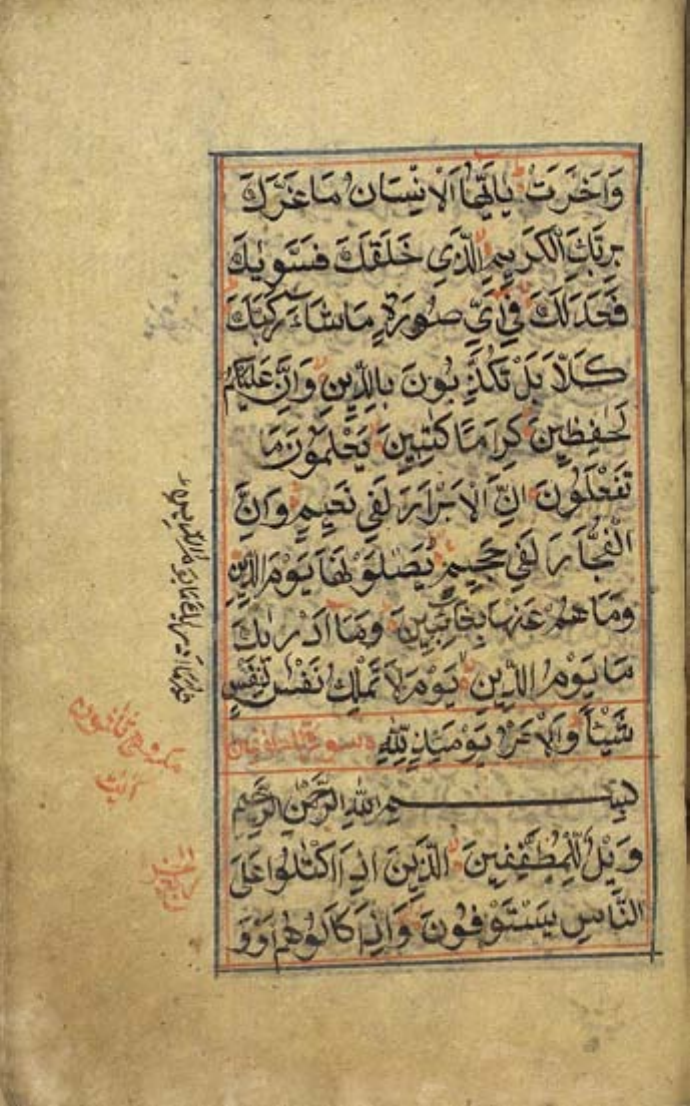 وَاَخَّرَتْ يٰاَيُّهَا الْاِنْسَانُ مَا غَرَّكَ
بِرَبِّكَ الْكَرِيمِ الَّذِي خَلَقَكَ فَسَوّٰيكَ
فَعَدَلَكَ فِي اَيِّ صُورَةٍ مَاشَاءَ رَكَّبَكَ
كَلَّا بَلْ تُكَذِّبُونَ بِالدِّينِ وَاِنَّ عَلَيْكُمْ
لَحٰفِظِينَ كِرَامًا كٰتِبِينَ يَعْلَمُونَ مَا
تَفْعَلُونَ اِنَّ الْاَبْرَارَ لَفِي نَعِيمٍ وَاِنَّ
الْفُجَّارَ لَفِي جَحِيمٍ يَصْلَوْنَهَا يَوْمَ الدِّينِ
وَمَا هُمْ عَنْهَا بِغَائِبِينَ وَمَا اَدْرٰىكَ
مَا يَوْمُ الدِّينِ يَوْمَ لَا تَمْلِكُ نَفْسٌ لِنَفْسٍ
شَيْئًا وَالْاَمْرُ يَوْمَئِذٍ لِلّٰهِ
بِسْمِ اللهِ الرَّحْمٰنِ الرَّحِيمِ
وَيْلٌ لِلْمُطَفِّفِينَ الَّذِينَ اِذَا اكْتَالُوا عَلَى
النَّاسِ يَسْتَوْفُونَ وَاِذَا كَالُوهُمْ اَوْ وَ